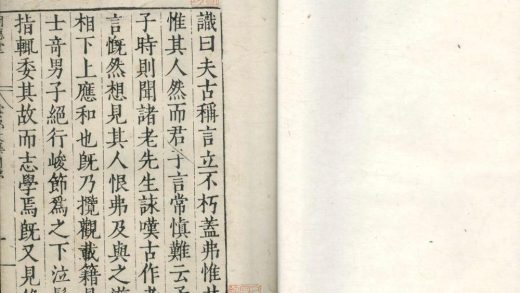 識曰夫古稱言立不朽蓋弗惟
惟其人然而君子言常慎難云
子時則聞諸老先生誄嘆古作者
言慨然想見其人恨弗及與之遊
相下上應和也既乃攬觀載籍見
士奇男子絕行峻節為之下泣
措輒委其故而志學焉既又見